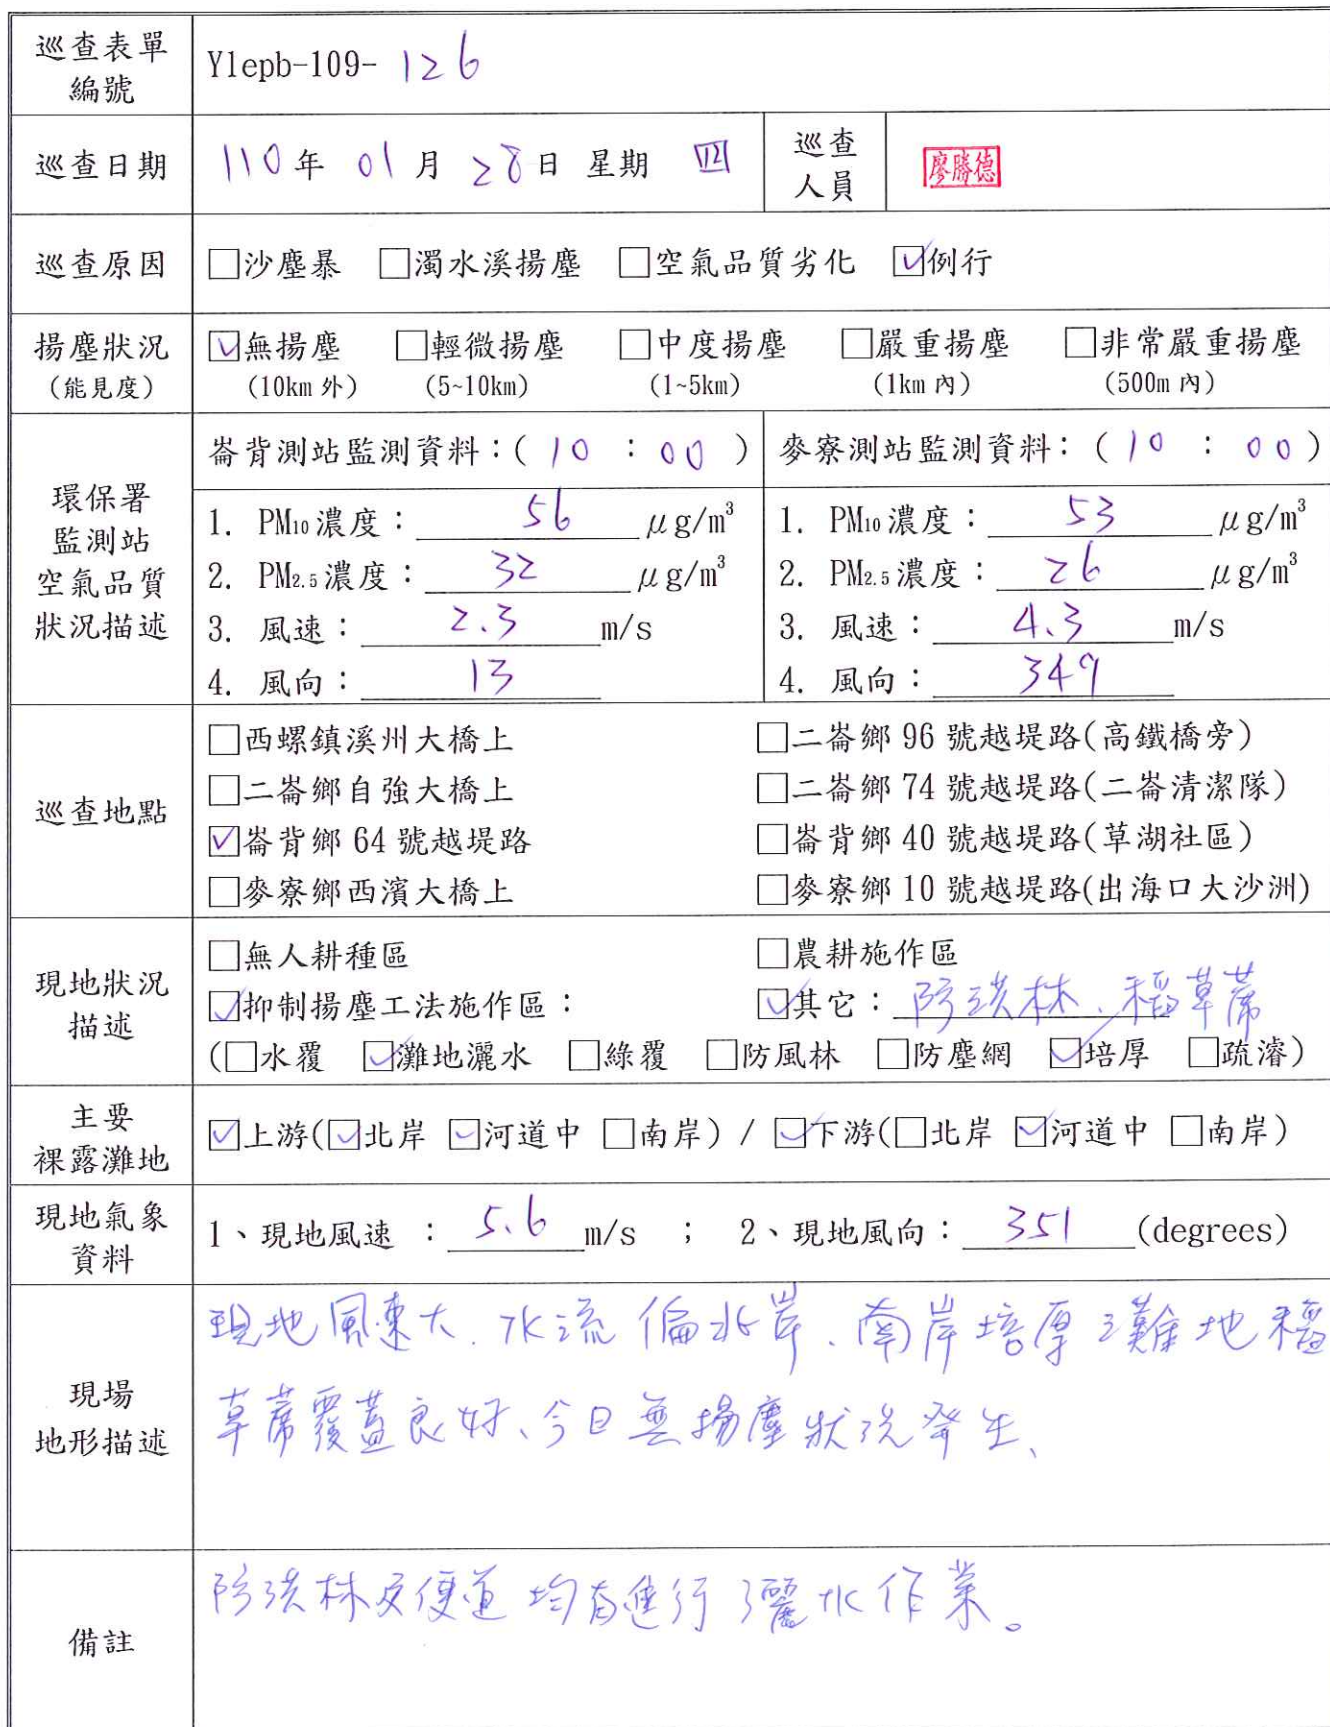 巡查表單
編號
Ylepb-109- 126
巡查日期
110年 01月 28日 星期 四
巡查
人員
廖勝德
巡查原因
□沙塵暴 □濁水溪揚塵 □空氣品質劣化 ☑例行
揚塵狀況
(能見度)
☑無揚塵 □輕微揚塵 □中度揚塵 □嚴重揚塵 □非常嚴重揚塵
(10km 外) (5~10km) (1~5km) (1km 內) (500m 內)
環保署
監測站
空氣品質
狀況描述
崙背測站監測資料：( 10 : 00 )
1. PM10濃度： 56 μg/m³
2. PM2.5濃度： 32 μg/m³
3. 風速： 2.3 m/s
4. 風向： 13
麥寮測站監測資料：( 10 : 00 )
1. PM10濃度： 53 μg/m³
2. PM2.5濃度： 26 μg/m³
3. 風速： 4.3 m/s
4. 風向： 349
巡查地點
□西螺鎮溪州大橋上 □二崙鄉 96 號越堤路(高鐵橋旁)
□二崙鄉自強大橋上 □二崙鄉 74 號越堤路(二崙清潔隊)
☑崙背鄉 64 號越堤路 □崙背鄉 40 號越堤路(草湖社區)
□麥寮鄉西濱大橋上 □麥寮鄉 10 號越堤路(出海口大沙洲)
現地狀況
描述
□無人耕種區 □農耕施作區
☑抑制揚塵工法施作區： ☑其它：防洪林、稻草蓆
(□水覆 ☑灘地灑水 □綠覆 □防風林 □防塵網 ☑培厚 □疏濬)
主要
裸露灘地
☑上游(☑北岸 ☑河道中 □南岸) / ☑下游(□北岸 ☑河道中 □南岸)
現地氣象
資料
1、現地風速 ： 5.6 m/s ； 2、現地風向： 351 (degrees)
現場
地形描述
現地風速大、水流偏北岸、南岸培厚灘地稻
草蓆覆蓋良好、今日無揚塵狀況發生、
備註
防洪林及便道均有進行灑水作業。